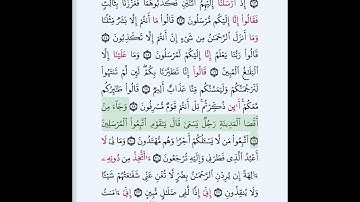 إِذْ أَرْسَلْنَآ إِلَيْهِمُ ٱثْنَيْنِ فَكَذَّبُوهُمَا فَعَزَّزْنَا بِثَالِثٍ
فَقَالُوٓا۟ إِنَّآ إِلَيْكُم مُّرْسَلُونَ ١٤ قَالُوا۟ مَآ أَنتُمْ إِلَّا بَشَرٌ مِّثْلُنَا
وَمَآ أَنزَلَ ٱلرَّحْمَٰنُ مِن شَىْءٍ إِنْ أَنتُمْ إِلَّا تَكْذِبُونَ ١٥
قَالُوا۟ رَبُّنَا يَعْلَمُ إِنَّآ إِلَيْكُمْ لَمُرْسَلُونَ ١٦ وَمَا عَلَيْنَآ إِلَّا
ٱلْبَلَٰغُ ٱلْمُبِينُ ١٧ قَالُوٓا۟ إِنَّا تَطَيَّرْنَا بِكُمْ لَئِن لَّمْ تَنتَهُوا۟
لَنَرْجُمَنَّكُمْ وَلَيَمَسَّنَّكُم مِّنَّا عَذَابٌ أَلِيمٌ ١٨ قَالُوا۟ طَٰٓئِرُكُم
مَّعَكُمْ أَئِن ذُكِّرْتُم بَلْ أَنتُمْ قَوْمٌ مُّسْرِفُونَ ١٩ وَجَآءَ مِنْ
أَقْصَا ٱلْمَدِينَةِ رَجُلٌ يَسْعَىٰ قَالَ يَٰقَوْمِ ٱتَّبِعُوا۟ ٱلْمُرْسَلِينَ
٢٠ ٱتَّبِعُوا۟ مَن لَّا يَسْـَٔلُكُمْ أَجْرًا وَهُم مُّهْتَدُونَ ٢١ وَمَا لِىَ لَآ
أَعْبُدُ ٱلَّذِى فَطَرَنِى وَإِلَيْهِ تُرْجَعُونَ ٢٢ ءَأَتَّخِذُ مِن دُونِهِۦٓ
ءَالِهَةً إِن يُرِدْنِ ٱلرَّحْمَٰنُ بِضُرٍّ لَّا تُغْنِ عَنِّى شَفَٰعَتُهُمْ شَيْـًٔا
وَلَا يُنقِذُونِ ٢٣ إِنِّىٓ إِذًا لَّفِى ضَلَٰلٍ مُّبِينٍ ٢٤ إِنِّىٓ ءَامَنتُ